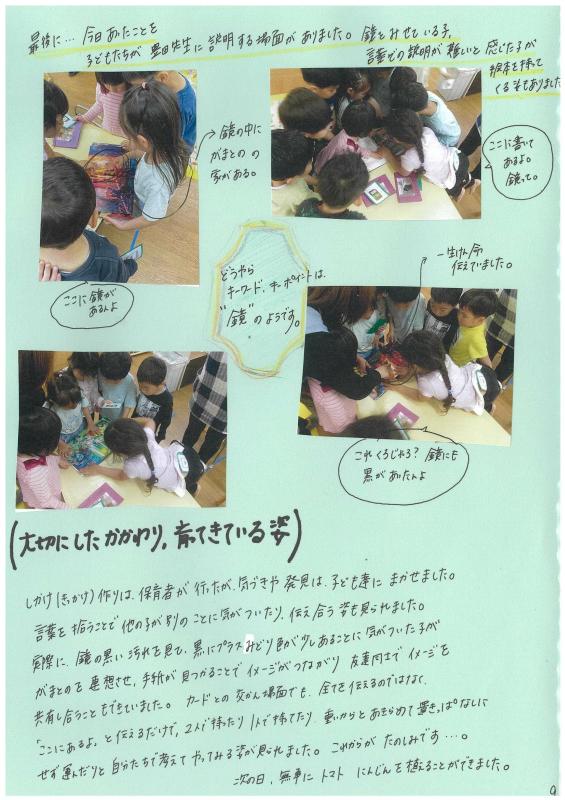 最後に… 今日あったことを
子どもたちが 豊田先生に 説明する場面がありました。 鏡をみせている子、
言葉での説明が 難しいと 感じた子が
絵本を持って
くる子もありました
鏡の中に
がまとのの
家がある。
ここに書いて
あるよ。
鏡って。
ここに鏡が
あるんよ
どうやら
キーワード、キーポイントは、
“鏡”のようです。
一生けん命
伝えていました。
これくろじゃろ? 鏡にも
黒があったんよ
(大切にしたかかわり、育ってきている姿)
しかけ(きっかけ)作りは、保育者が 行ったが、気づきや 発見は、子ども達に まかせました。
言葉を 拾うことで 他の子が 別の ことに 気がついたり、伝え合う 姿も見られました。
実際に、鏡の黒い汚れを見て、黒にプラス みどり色が少しあることに 気がついた子が
がまとのを 連想させ、手紙が 見つかることで イメージがつながり 友達同士で イメージを
共有し合うこともできていました。 カードとの 交かん場面でも、全てを伝えるのではなく、
「ここにあるよ。」と 伝えるだけで、2人で持ったり 1人で持てたり、重いからと あきらめて 置きっぱなしに
せず 運んだりと 自分たちで考えて やってみる姿が見られました。 これからが たのしみです…。
次の日、無事に トマト にんじんを 植えることができました。
9